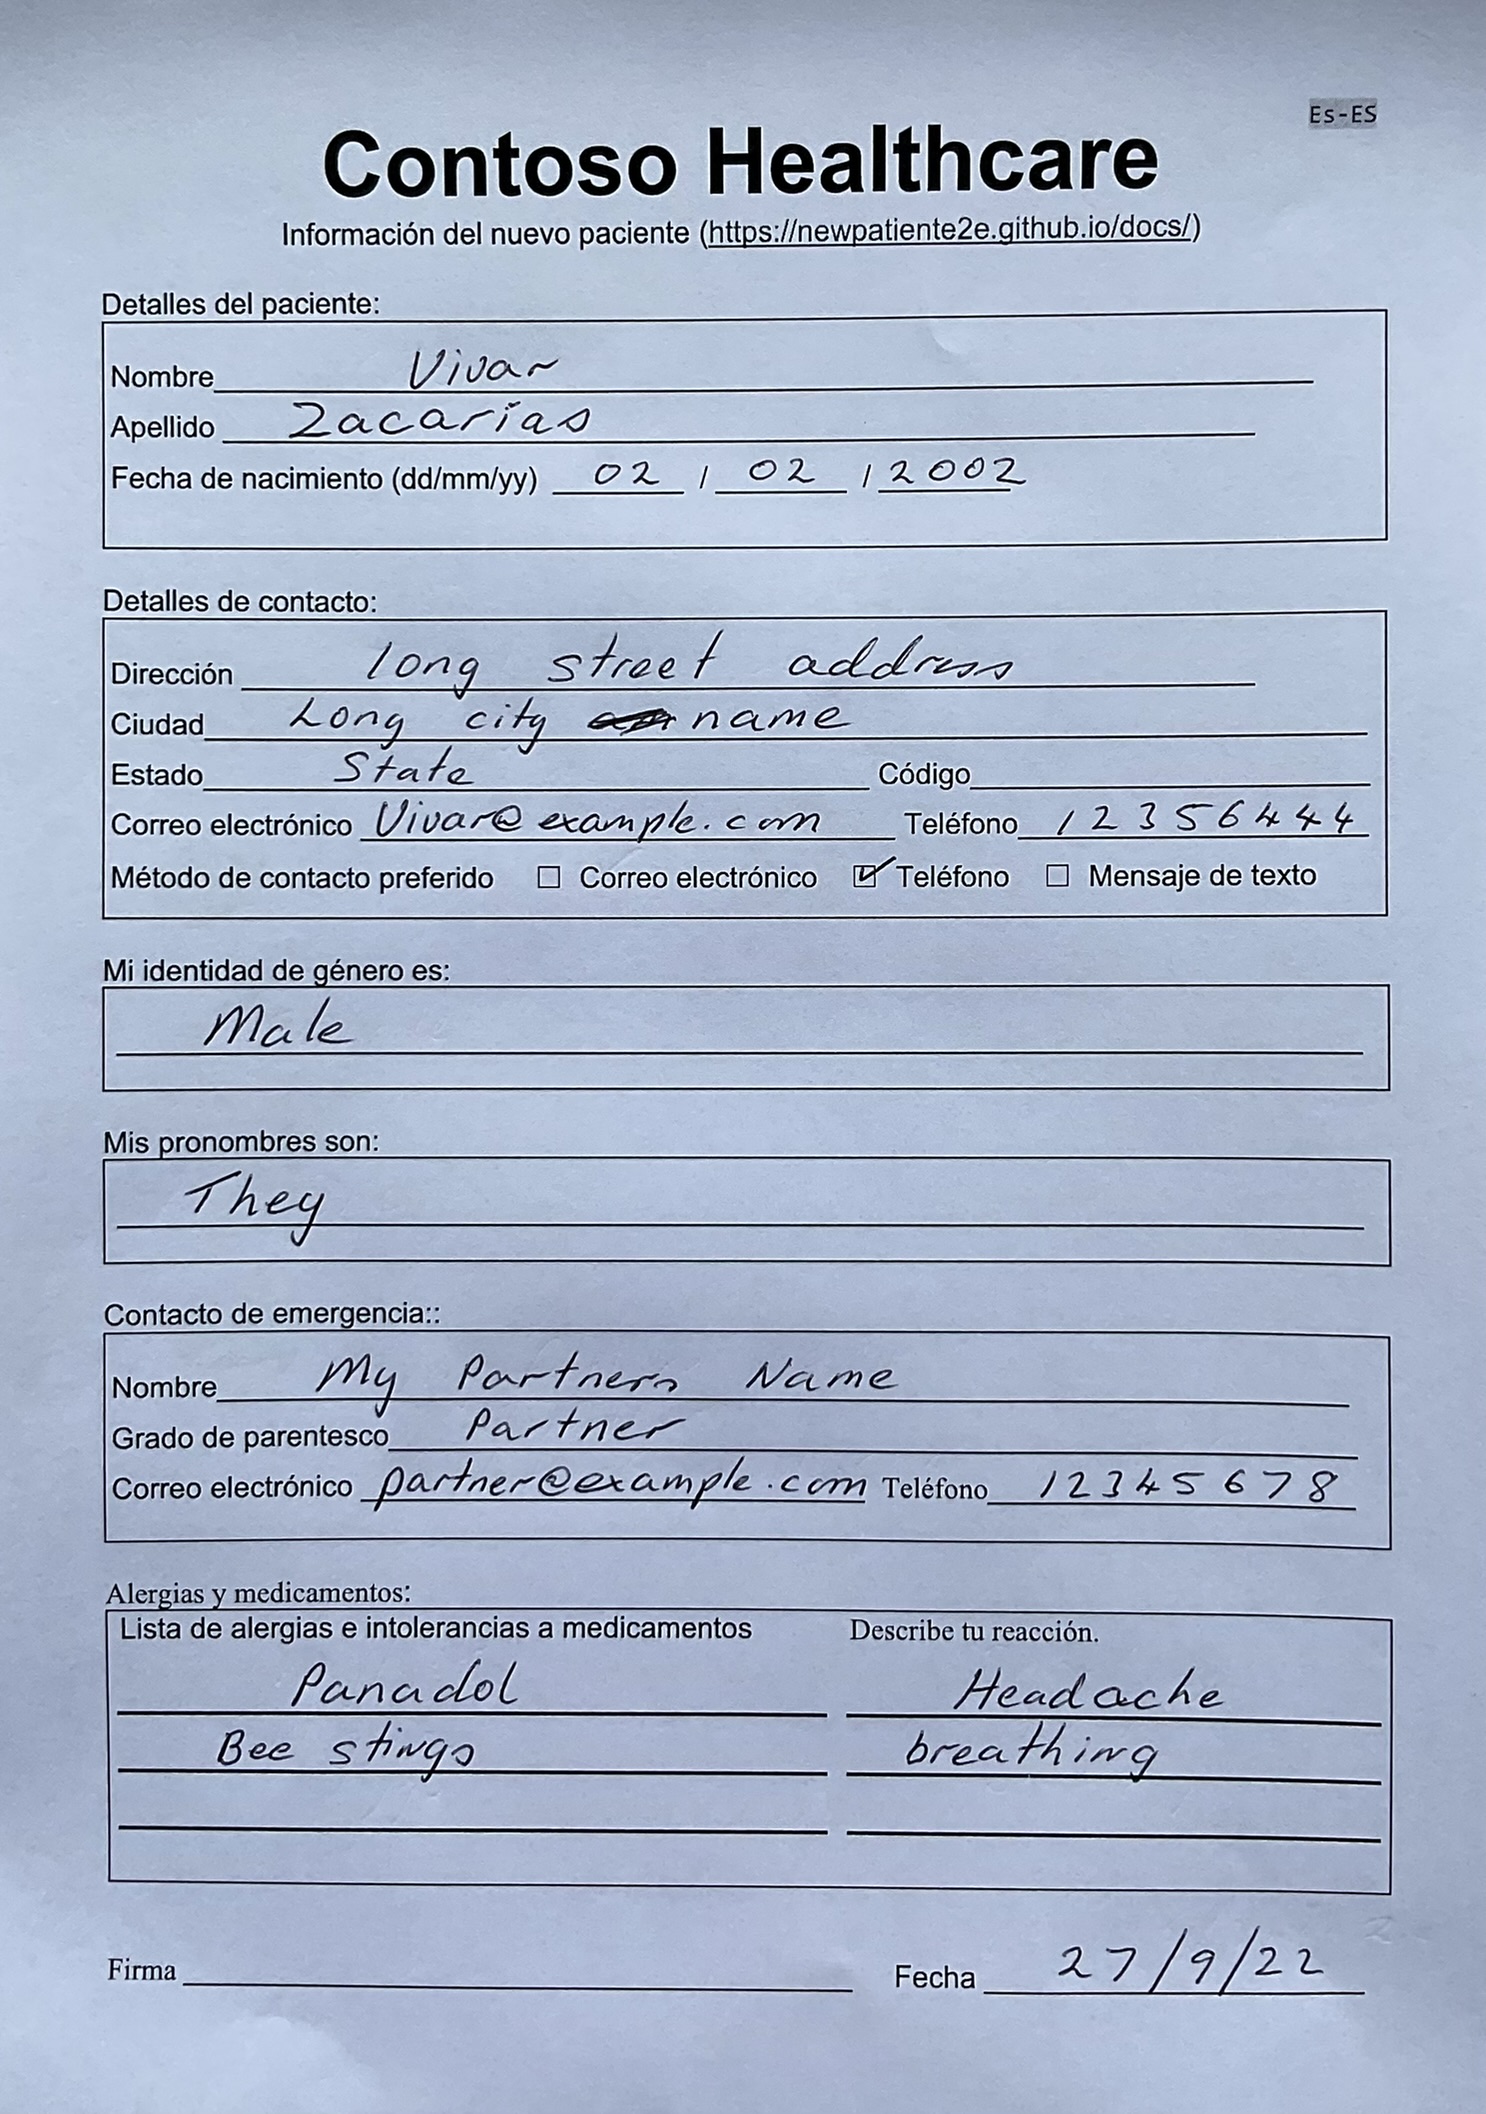 Es-ES
Contoso Healthcare
Información del nuevo paciente (https://newpatiente2e.github.io/docs/)
Detalles del paciente:
Nombre Vivar
Apellido Zacarías
Fecha de nacimiento (dd/mm/yy) 02 / 02 / 2002
Detalles de contacto:
Dirección long street address
Ciudad Long city name
Estado State Código
Correo electrónico Vivar@example.com Teléfono 12356444
Método de contacto preferido ☐ Correo electrónico ☑ Teléfono ☐ Mensaje de texto
Mi identidad de género es:
Male
Mis pronombres son:
They
Contacto de emergencia::
Nombre My Partners Name
Grado de parentesco Partner
Correo electrónico partner@example.com Teléfono 12345678
Alergias y medicamentos:
Lista de alergias e intolerancias a medicamentos Describe tu reacción.
Panadol Headache
Bee stings breathing
Firma Fecha 27/9/22